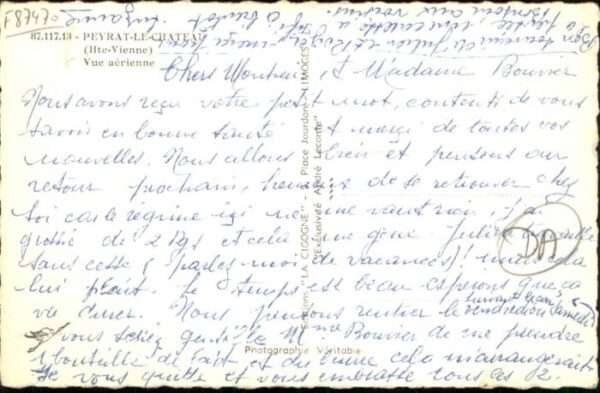 F8747
87.117.13 - PEYRAT-LE-CHATEAU
(Hte-Vienne)
Vue aérienne
Chers Monsieur et Madame Bouvier
Nous avons reçu votre petit mot, contents de vous
savoir en bonne santé et merci de toutes vos
nouvelles. Nous allons bien et pensons au
retour prochain, heureux de se retrouver chez
soi car le régime ici ne me vaut rien, j'ai
grossi de 2 Kgs et cela me gêne. Julien
sans cesse (parlez moi de vacances)! mais cela
lui plait. le temps est beau espérons que ça
va durer. Nous pensons rentrer le vendredi ou samedi
vous seriez gentille Mme Bouvier de me prendre
1 bouteille de lait et du cela m'arrangerait
Je vous quitte et vous embrasse tous les 2.
Suzanne
Bonjour aux voisins.
Editions "LA CIGOGNE" - Place Jourdan - LIMOGES
"Exclusivité André Leconte"
Photographie Véritable
DA